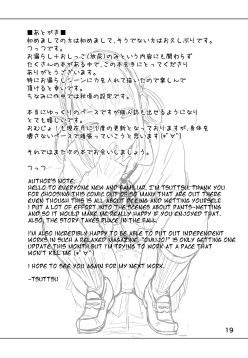 ■あとがき■
初めましての方は初めまして、そうでない方はお久しぶりです。
つっつです。
お漏らし+おしっこ(放尿)のみという内容にも関わらず
たくさんのものがある中で、この本を手にとってくださり
ありがとうございます。
特にお漏らしシーンに力を入れて描いたので楽しんで
頂けると幸いです。
ちなみに今作は秋頃の設定です。
本当にゆっくりのペースですが個人誌も出せるようになり
とても嬉しいです。
それではまた次の本でお会いしましょう。
つっつ
AUTHOR'S NOTE:
HELLO TO EVERYONE NEW AND FAMILIAR, I'M TSUTTSU. THANK YOU
FOR CHOOSING THIS COMIC OUT OF SO MANY THAT ARE OUT THERE
EVEN THOUGH THIS IS ALL ABOUT PEEING AND WETTING YOURSELF
I PUT A LOT OF EFFORT INTO THE SCENES ABOUT PANTS-WETTING
AND SO IT WOULD MAKE ME REALLY HAPPY IF YOU ENJOYED THAT.
ALSO, THE STORY TAKES PLACE IN THE FALL.
I'M ALSO INCREDIBLY HAPPY TO BE ABLE TO PUT OUT INDEPENDENT
WORKS IN SUCH A RELAXED MAGAZINE. "OMUJO!" IS ONLY GETTING ONE
UPDATE THIS MONTH BUT I'M TRYING TO WORK AT A PACE THAT
WON'T KILL ME (*ﾟ∀ﾟ)
I HOPE TO SEE YOU AGAIN FOR MY NEXT WORK.
-TSUTTSU
19